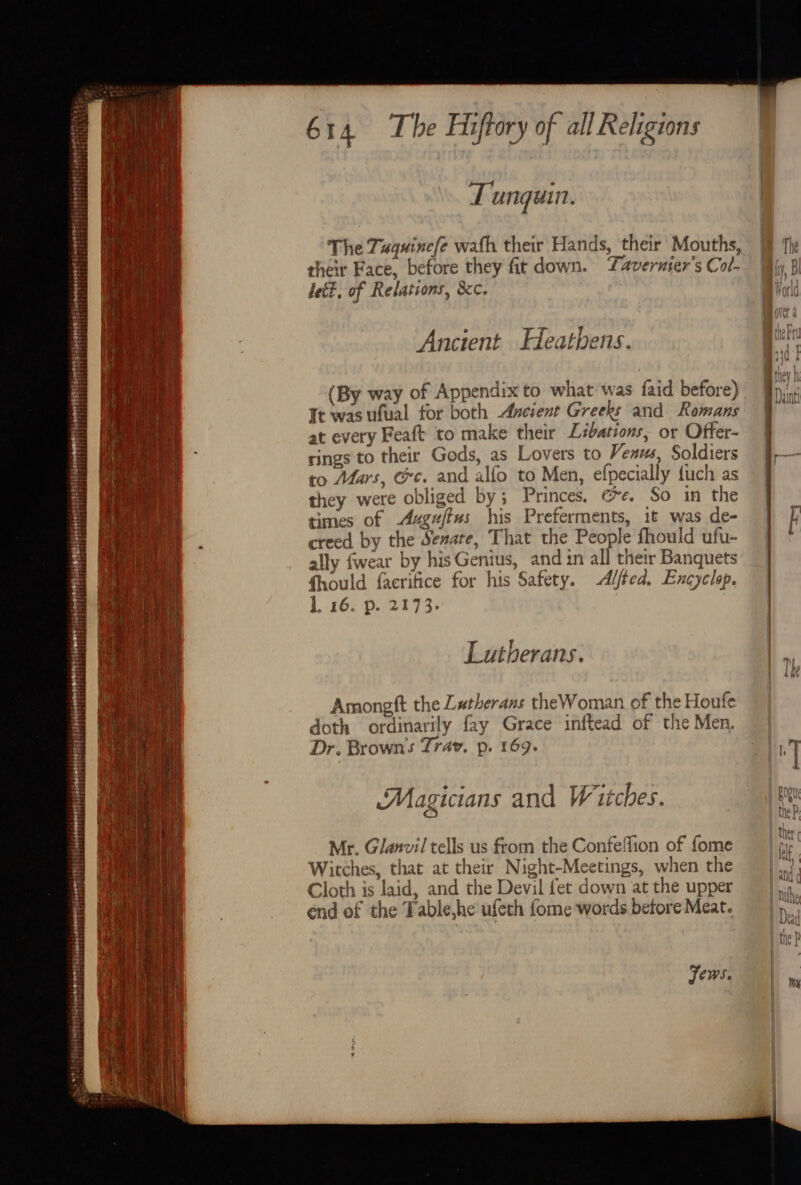 614 The Hiſtory of all Religions
Tunquin.
The Tuquineſe waſh their Hands, their Mouths,
their Face, before they ſit down. Tavernier's Col-
lect. of Relations, &c.
Ancient Heathens.
(By way of Appendix to what was ſaid before)
It was uſual for both Ancient Greeks and Romans
at every Feaſt to make their Libations, or Offer-
rings to their Gods, as Lovers to Venus, Soldiers
to Mars, &c. and alſo to Men, eſpecially ſuch as
they were obliged by; Princes, &c. So in the
times of Auguſtus his Preferments, it was de-
creed by the Senate, That the People ſhould uſu-
ally ſwear by his Genius, and in all their Banquets
ſhould ſacrifice for his Safety. Alſted. Encyclop.
l. 16. p. 2173.
Lutherans.
Amongſt the Lutherans theWoman of the Houſe
doth ordinarily ſay Grace inſtead of the Men.
Dr. Brown's Trav. p. 169.
Magicians and Witches.
Mr. Glanvil tells us from the Confeſſion of ſome
Witches, that at their Night-Meetings, when the
Cloth is laid, and the Devil ſet down at the upper
end of the Table,he uſeth ſome words before Meat.
Jews.
The
World
over a
they
the
and
Dead
the